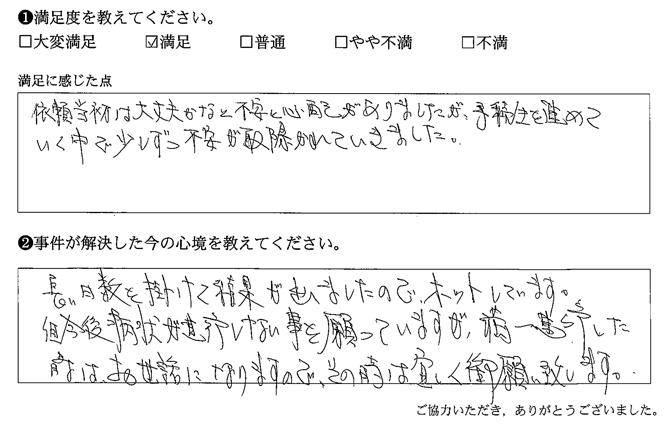 ❶満足度を教えてください。
☐大変満足 ☑満足 ☐普通 ☐やや不満 ☐不満
満足に感じた点
依頼当初は大丈夫かなと不安と心配がありましたが、手続きを進めて
いく中で少しずつ不安が取除かれていきました。
❷事件が解決した今の心境を教えてください。
長い日数を掛けて結果が出ましたので、ホットしています。
但今後病状が悪戻しない事を願っていますが、万一悪戻した
時は、お世話になりますので、その時は宜しく御願い致します。
ご協力いただき，ありがとうございました。